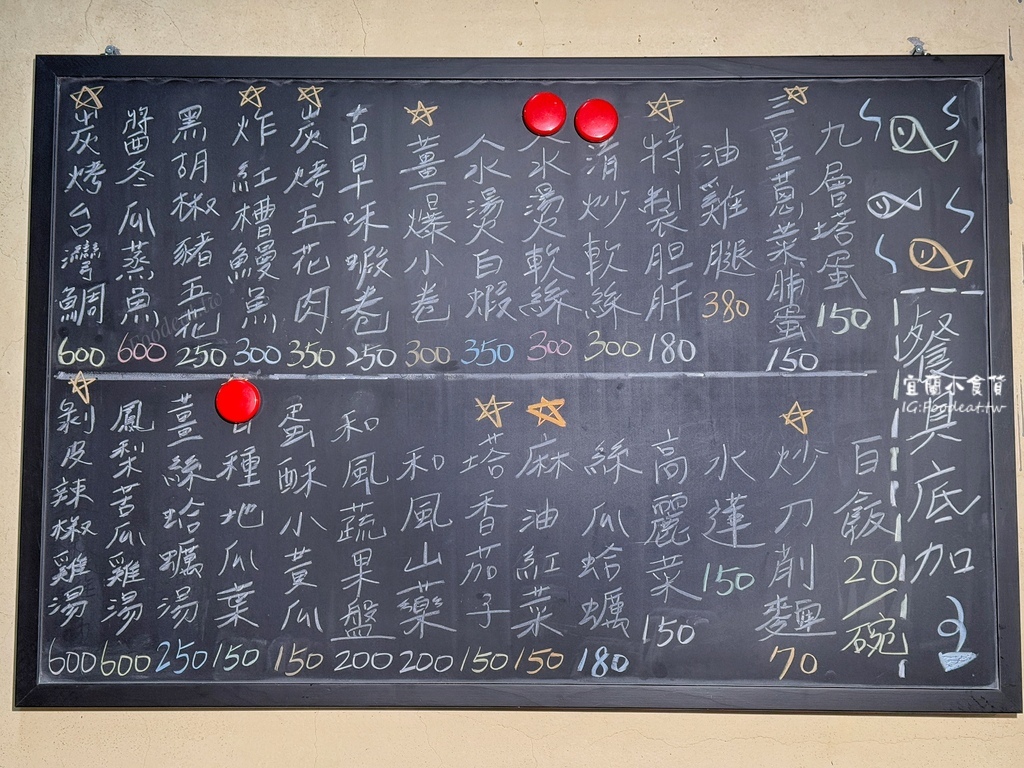 餐具底加
九層塔蛋 150
三星蔥菜脯蛋 150
油雞腿 380
特製胆肝 180
清炒軟絲 300
水燙軟絲 300
水燙白蝦 350
薑爆小卷 300
古早味蝦卷 250
炭烤五花肉 350
炸紅槽鰻魚 300
黑胡椒豬五花 250
醬冬瓜蒸魚 600
炭烤台灣鯛 600
白飯 20/碗
炒刀削麵 70
水蓮 150
高麗菜 150
絲瓜蛤蠣 180
麻油紅菜 150
塔香茄子 150
和風山藥 200
和風蔬果盤 200
蛋酥小黃瓜 150
種地瓜葉 150
薑絲蛤蠣湯 250
鳳梨苦瓜雞湯 600
剝皮辣椒雞湯 600
宜蘭小食貨
IG:Foodeat.tw